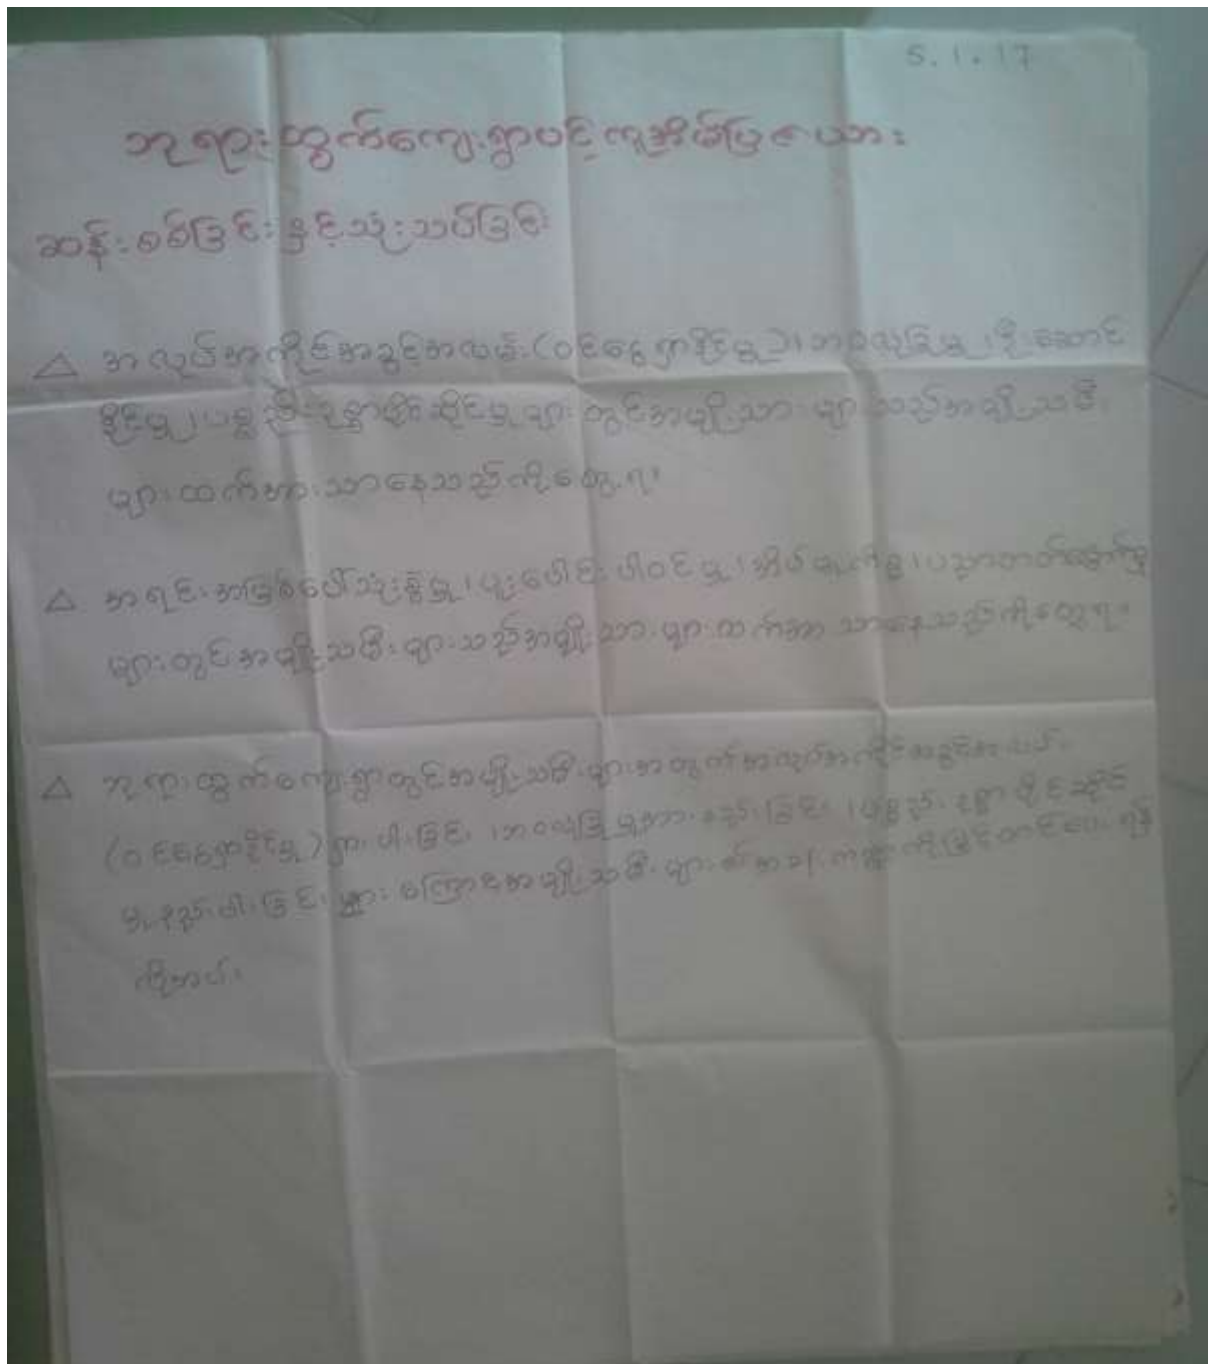 5.1.17
ဘုရားထွက်ကျေးရွာပင့်ကူအိမ်ပြဇယား
ဆန်းစစ်ခြင်းနှင့်သုံးသပ်ခြင်း
△ အလုပ်အကိုင်အခွင့်အလမ်း(ဝင်ငွေရှာနိုင်မှု)၊ဘဝလုံခြုံမှု၊ဦးဆောင်
နိုင်မှု၊ပစ္စည်းဥစ္စာပိုင်ဆိုင်မှုများတွင်အမျိုးသားများသည်အမျိုးသမီး
များထက်အားသာနေသည်ကိုတွေ့ရ။
△ အရင်းအမြစ်ပေါ်သုံးစွဲမှု၊ပူးပေါင်းပါဝင်မှု၊အိမ်မှုကိစ္စ၊ပညာတတ်မြောက်မှု
များတွင်အမျိုးသမီးများသည်အမျိုးသားများထက်အားသာနေသည်ကိုတွေ့ရ။
△ ဘုရားထွက်ကျေးရွာတွင်အမျိုးသမီးများအတွက်အလုပ်အကိုင်အခွင့်အလမ်း
(ဝင်ငွေရှာနိုင်မှု)ရှားပါးခြင်း၊ဘဝလုံခြုံမှုအားနည်းခြင်း၊ပစ္စည်းဥစ္စာပိုင်ဆိုင်
မှုနည်းပါးခြင်းများကြောင့်အမျိုးသမီးများ၏အခန်းကဏ္ဍကိုမြှင့်တင်ပေးရန်
လိုအပ်။